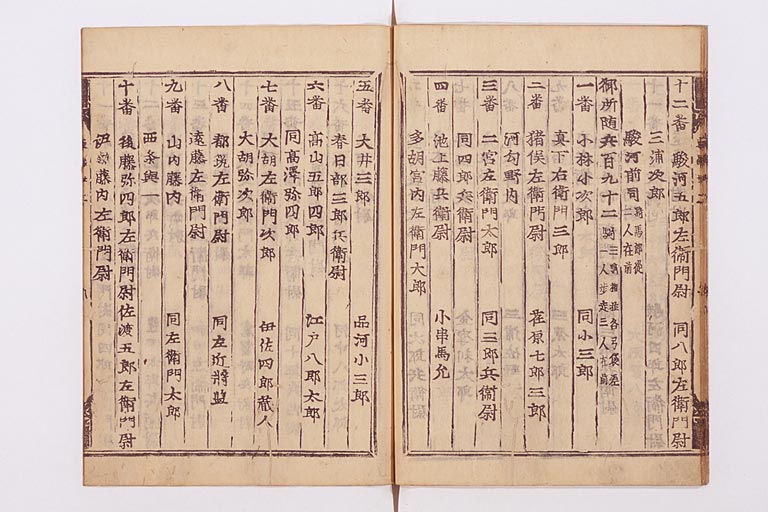 十二番 駿河五郎左衛門尉 同八郎左衛門尉
三浦次郎
駿河前司
御所随兵百九十二騎
一番 小林小次郎 同小三郎
真下右衛門三郎
二番 猪俣左衛門尉 荏原七郎三郎
河勾野内
三番 二宮左衛門太郎 同三郎兵衛尉
同四郎兵衛尉
四番 池上藤兵衛尉 小串馬允
多胡宮内左衛門太郎
五番 大井三郎 品河小三郎
春日部三郎兵衛尉
六番 高山五郎四郎 江戸八郎太郎
同高澤弥四郎
七番 大胡左衛門次郎 伊佐四郎蔵人
大胡弥次郎
八番 都筑左衛門尉 同左近将監
遠藤左衛門尉
九番 山内藤内 同左衛門太郎
西条與一
十番 後藤弥四郎左衛門尉 佐渡五郎左衛門尉
伊勢藤内左衛門尉